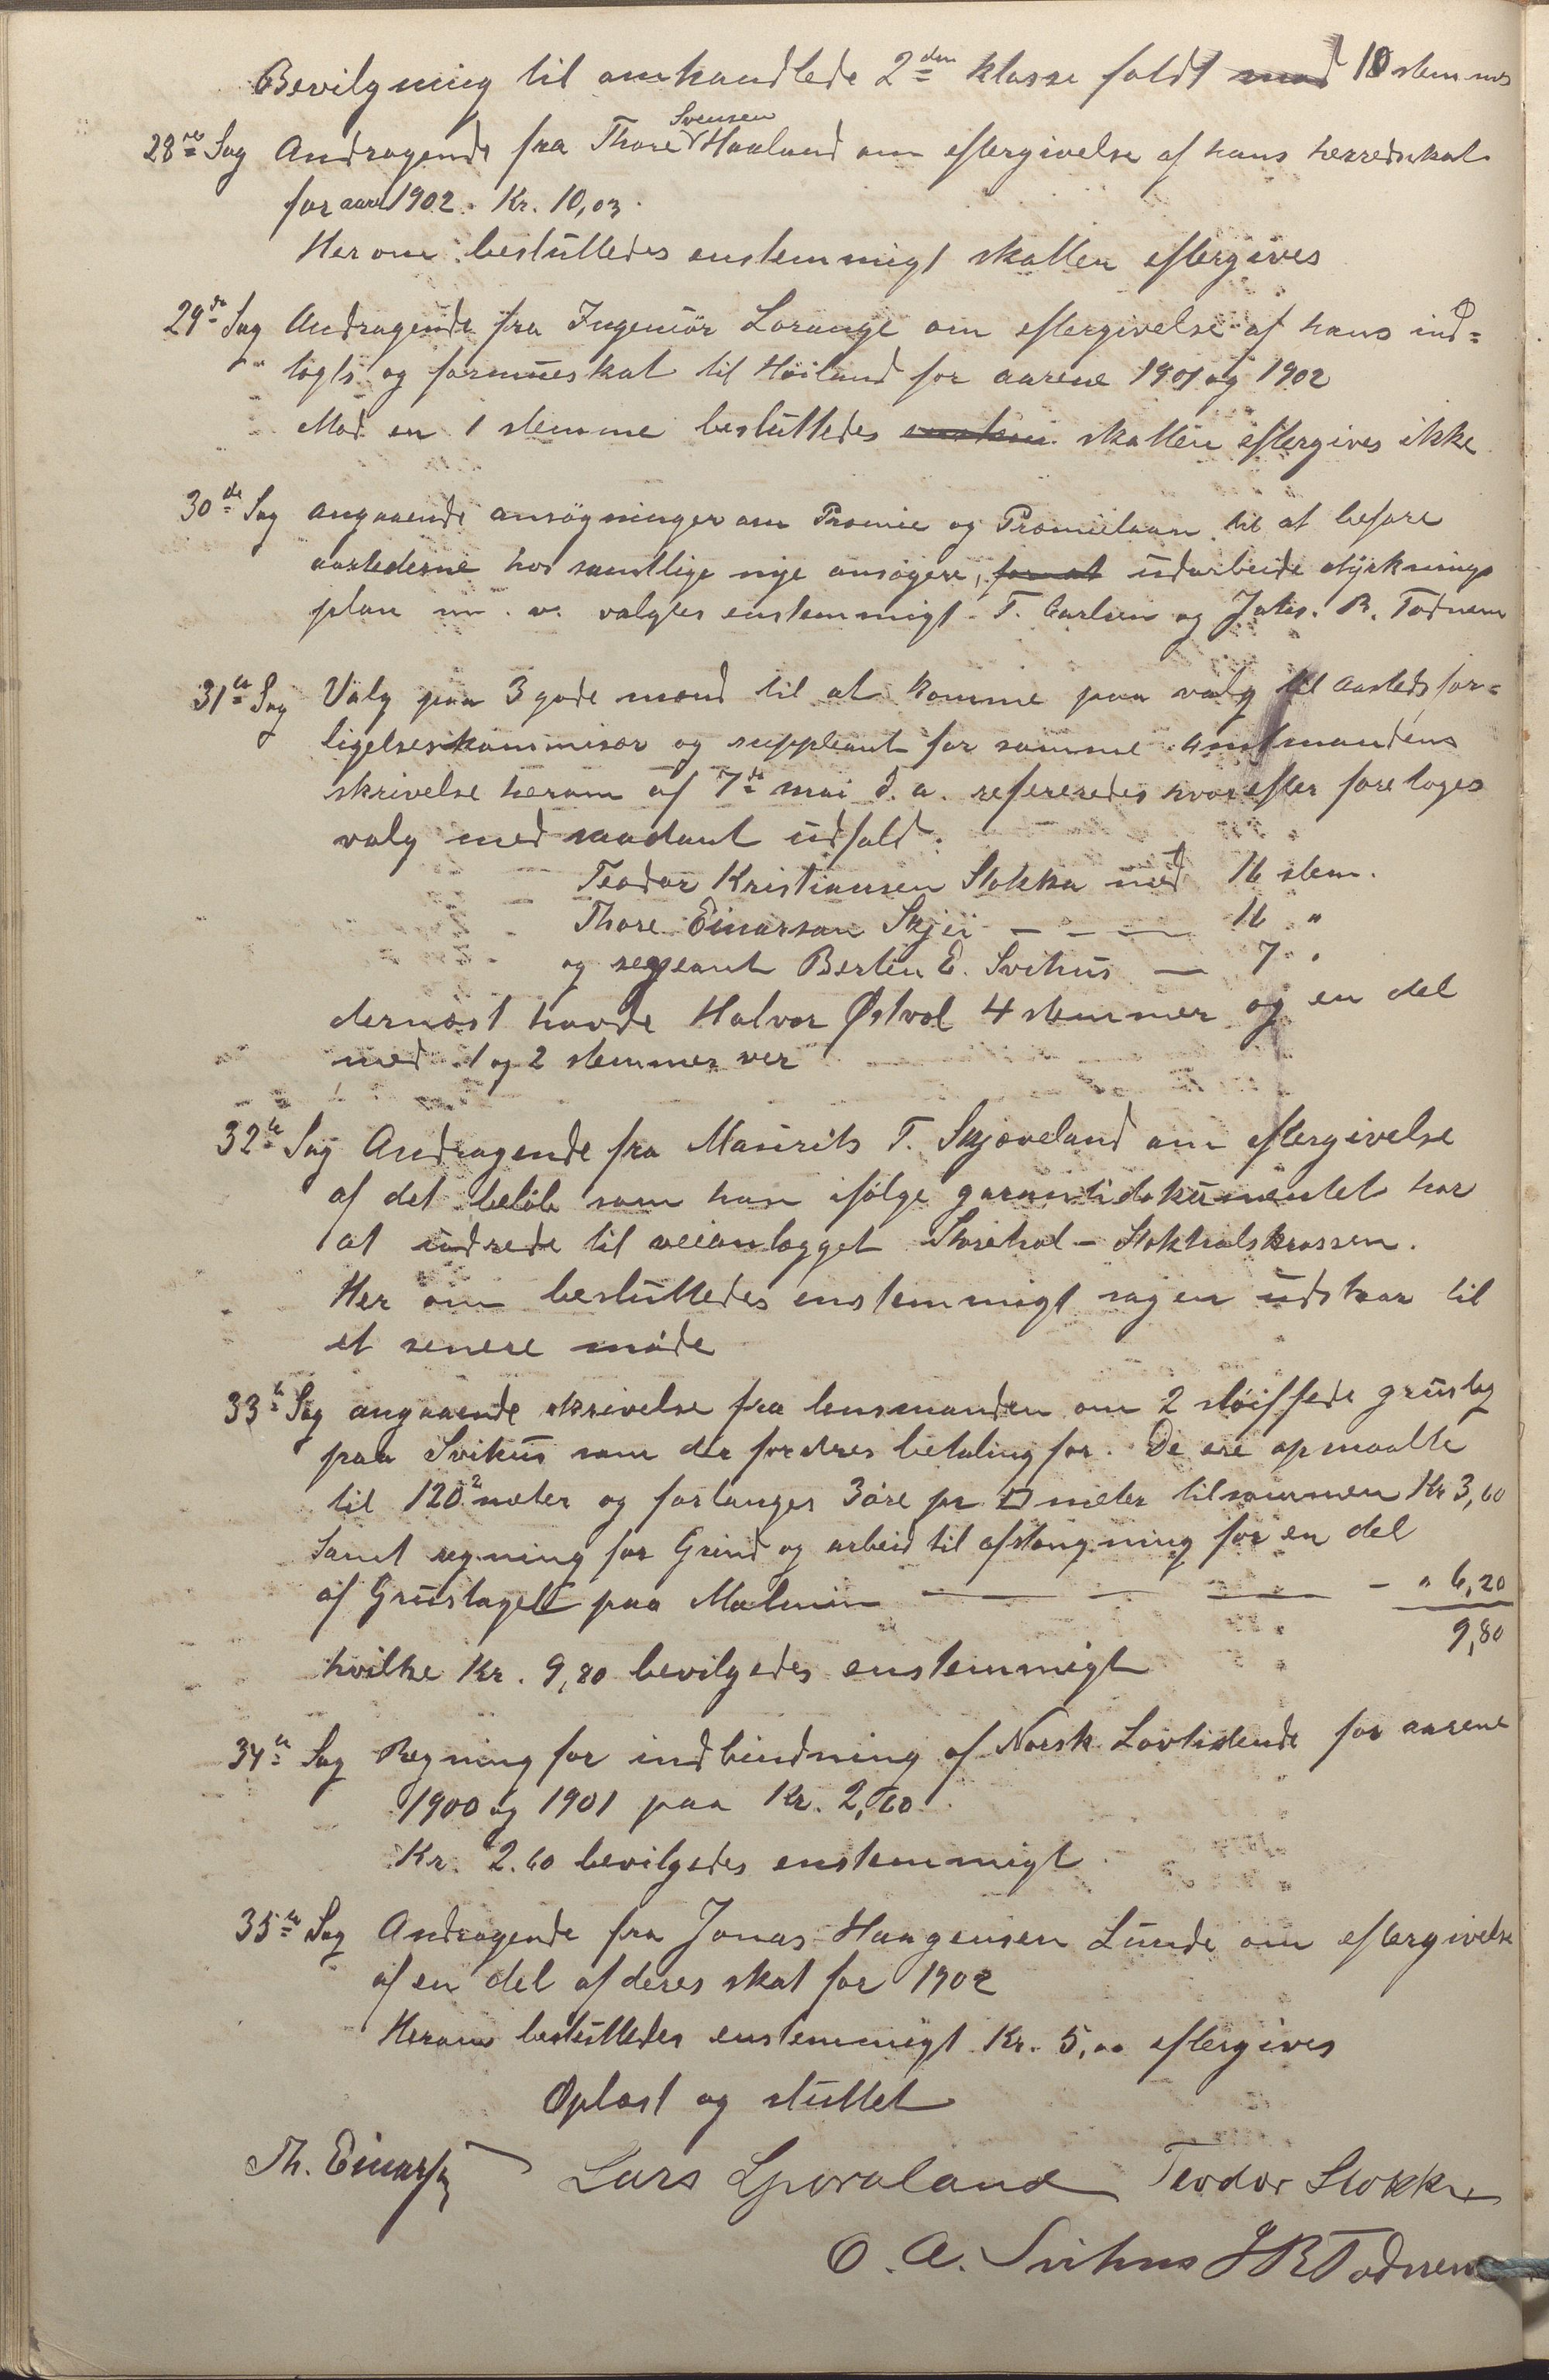 Bevilgning til omhandlede 2den klasse faldt mod 10 stemmer
28de Sag Andragende fra Thore Svensen Haaland om eftergivelse af hans herredsskat
for aaret 1902. Kr. 10,03.
Her om besluttedes enstemmigt skatten eftergives
29de Sag Andragende fra Ingeniør Lorange om eftergivelse af hans ind-
tægts og formueskat til Høiland for aarene 1901 og 1902
Mod en 1 stemme besluttedes enstem skatten eftergives ikke
30de Sag angaaende ansøgninger om Præmie og Præmielaan til at befare
aastederne hos samtlige nye ansøgere, for at udarbeide dyrknings
plan m. v. valgtes enstemmigt T. Carlsen og Johs. B. Tødnem
31te Sag Valg paa 3 gode mænd til at komme paa valg til aastedsfor-
ligelseskommisær og suppleant for samme amtmandens
skrivelse herom af 7de mai d. a. refereredes hvorefter foretoges
valg med saadant udfald.
Teodor Kristiansen Stokka med 16 stem.
Thore Einarsen Skjei — — — 16 "
og sergeant Bertin E. Svihus — 7 "
dernæst havde Halvor Østvol 4 stemmer og en del
med 1 og 2 stemmer ver
32te Sag Andragende fra Maurits T. Skjæveland om eftergivelse
af det beløb som han ifølge garantidokumentet har
at udrede til veianlægget Storehod - Stokkalskrossen.
Her om besluttedes enstemmigt sagen udstaar til
et senere møde
33te Sag angaaende skrivelse fra lensmanden om 2 sløiffede grustag
paa Svihus som der fordres betaling for. De ere opmaalte
til 120 2 meter og forlanges 3 øre pr □ meter tilsammen Kr 3,60
Samt regning for Grind og arbeid til afstængning for en del
af Grustaget paa Malmin — — — - " 6,20
9,80
hvilke Kr. 9,80 bevilgedes enstemmigt
34te Sag Regning for indbindning af Norsk Lovtidende for aarene
1900 og 1901 paa Kr. 2,60.
Kr. 2.60 bevilgedes enstemmigt.
35te Sag Andragende fra Jonas Haagensen Lunde om eftergivelse
af en del af deres skat for 1902
Herom besluttedes enstemmigt Kr. 5,00 eftergives
Oplæst og sluttet
Th. Einarsen Lars Teodor Stokka
O. A. Svihus J B Tødnem